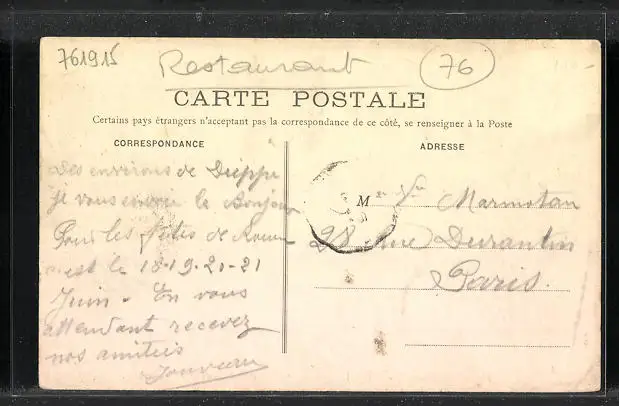 761915
Restaurant
76
CARTE POSTALE
Certains pays étrangers n'acceptant pas la correspondance de ce côté, se renseigner à la Poste
CORRESPONDANCE
ADRESSE
Des environs de Dieppe
je vous envoie le Bonjour
Pour les fêtes de Rouen
c'est le 18-19-20-21
Juin - En vous
attendant recevez
nos amitiés
M Marmotan
28 Rue Durantin
Paris.